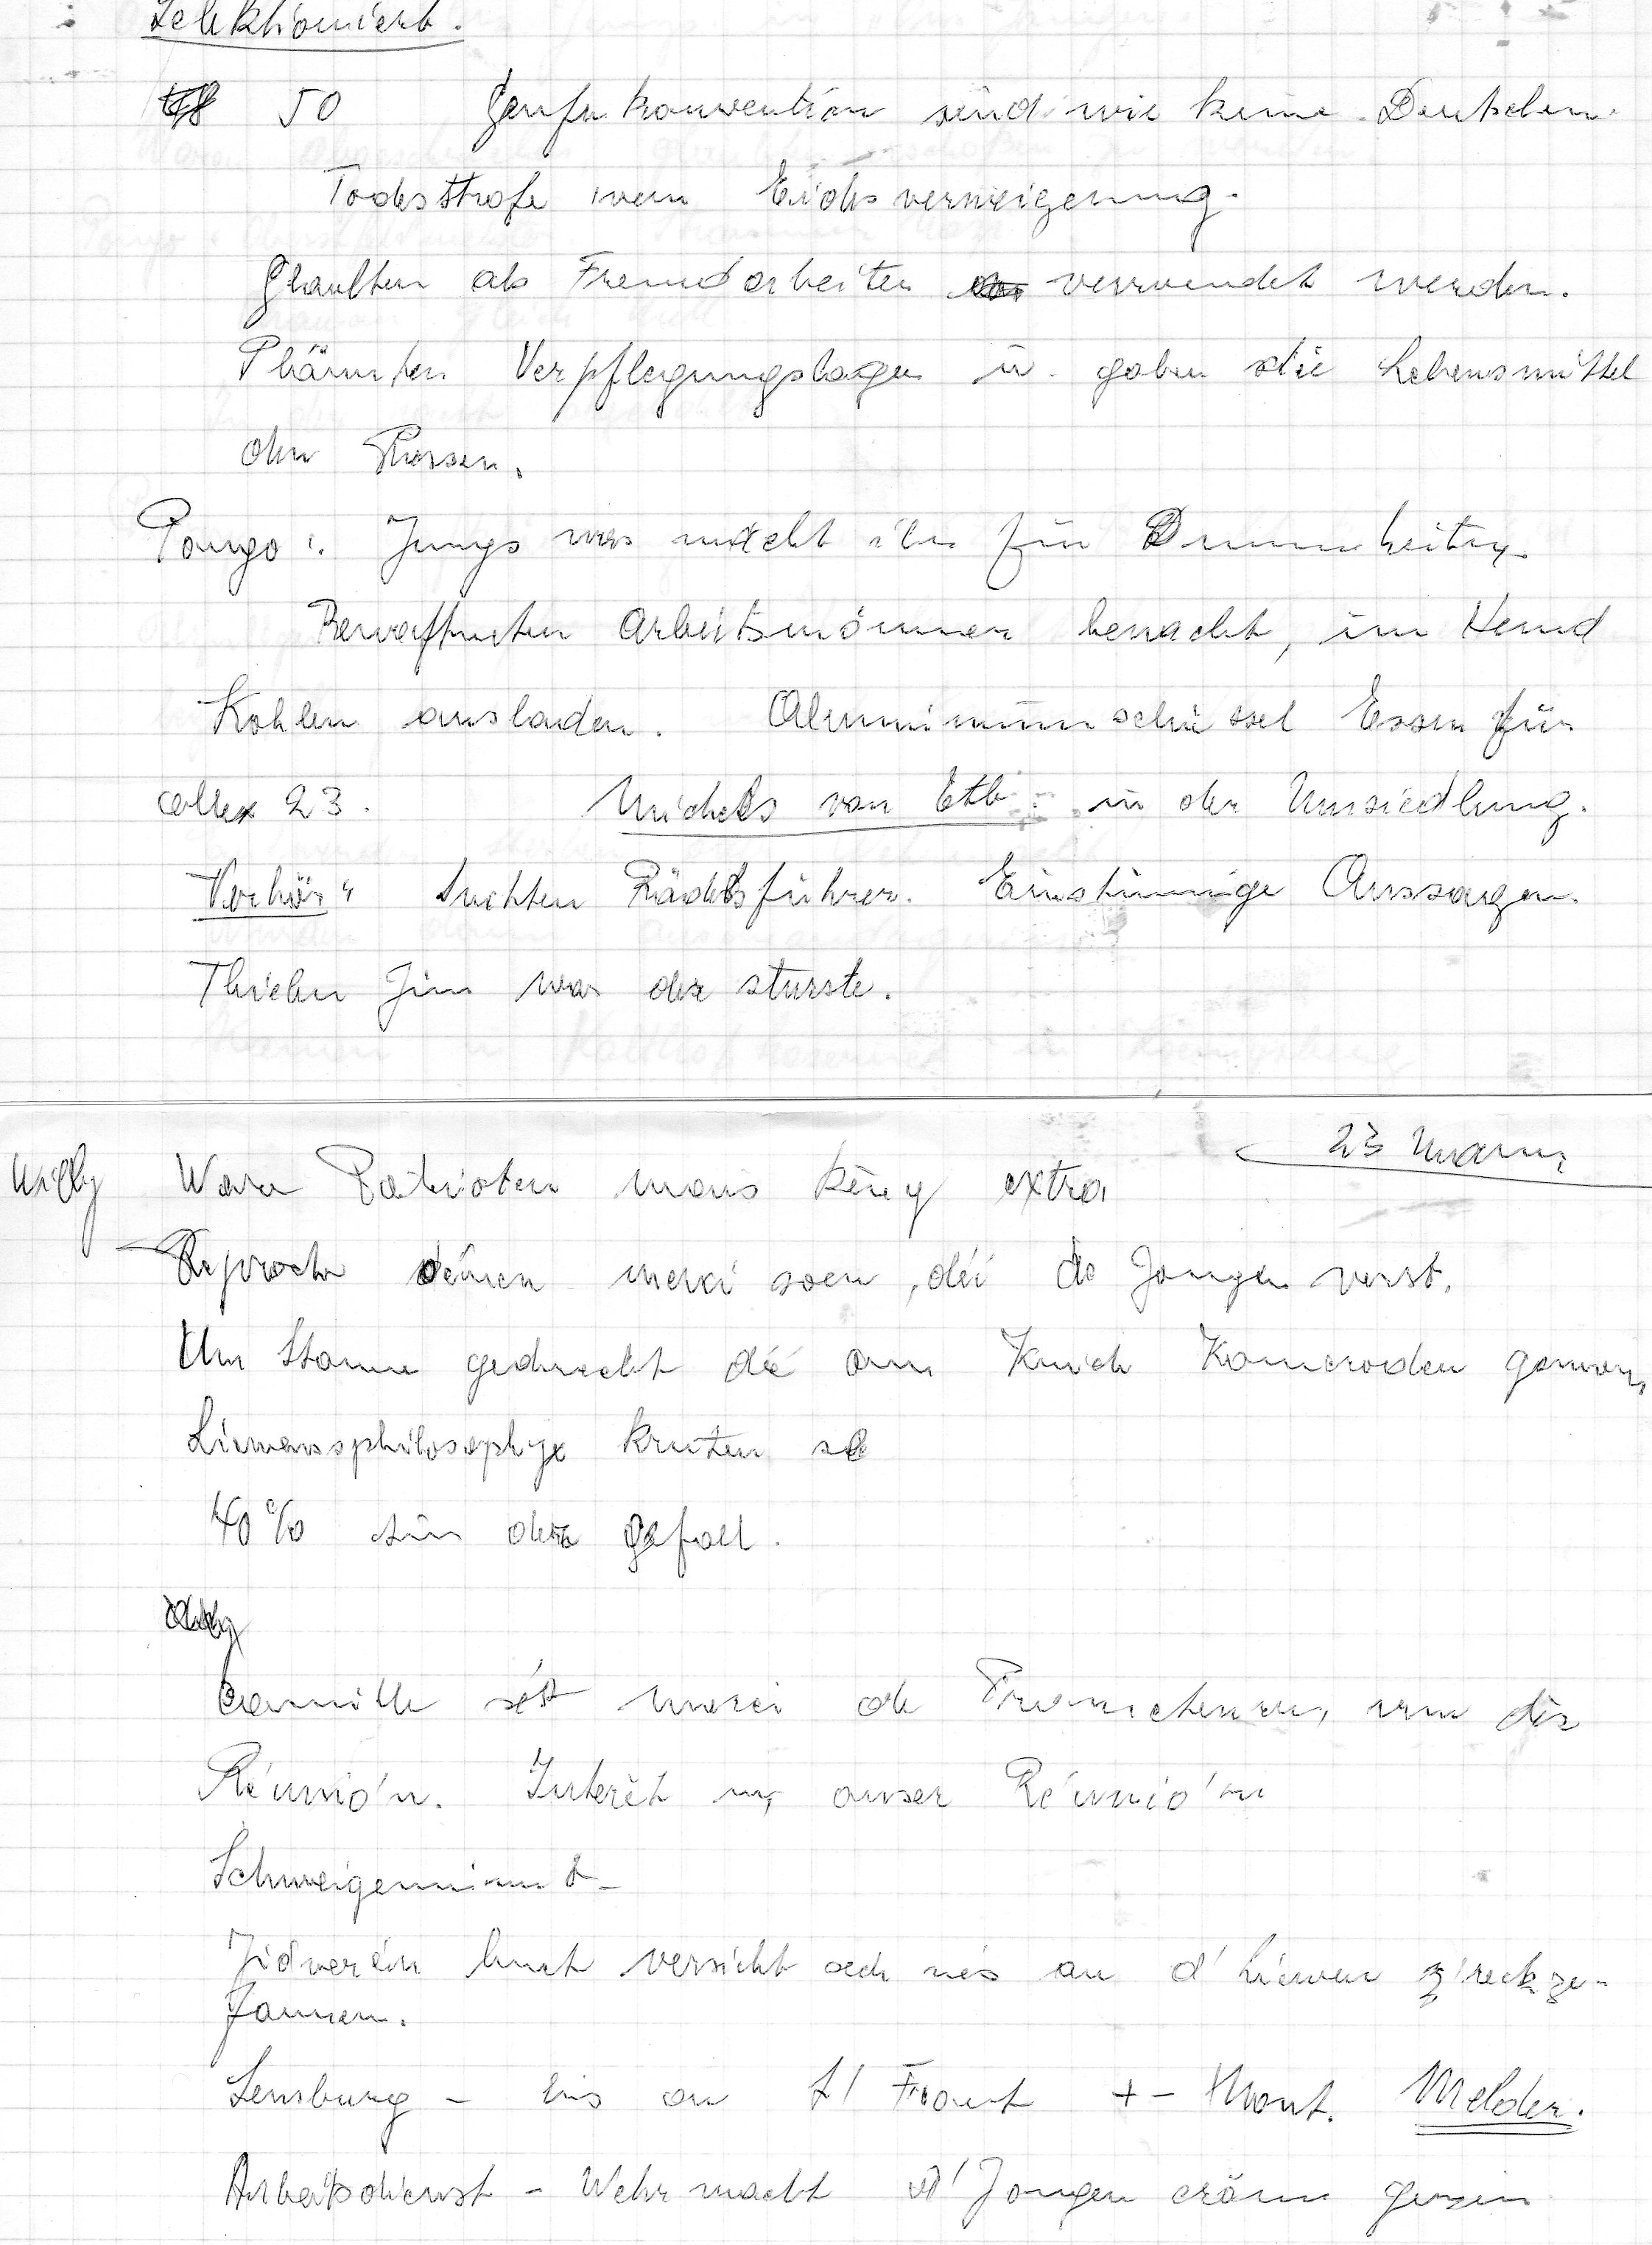 Selektioniert.
50 Genfer konvention sind wir keine Deutschen.
Todesstrafe wenn Eidesverweigerung.
Glaubten als Fremdarbeiter verwendet werden.
Plünderten Verpflegungslager u. gaben die Lebensmittel
den Russen.
Pongo: Jungs was macht ihr für Dummheiten.
Bewaffneten Arbeitsmänner bewacht, im Hemd
Kohlen ausladen. Aluminiumschüssel Essen für
alle 23. Michels von Ettb. in der Umsiedlung.
Verhör" Suchten Rädelsführer. Einstimmige Aussagen.
Thielen Jim war der sturste.
23 Mann
Willy Waren Patrioten mais keng extra
Reproche dénen merci soen, déi de Jongen verst.
Um Stamm gedreckt déi an Krich Komeroden gewon,
Liewensphilosophie kruten se
40% sin der gefall.
Camille sét merci de fir dës
Réunio'n. Interêt un onser Réunio'n
Schweigeminut
Jidveréin huet versicht sech nés an d'Liewen z'reckze-
fannen.
Sensburg - bis an d'Front +- Mont. Melder.
Arbeitsdienst - Wehrmacht d'Jongen eräm gesin